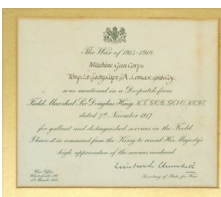 The War of 1914-1918.
Machine Gun Corps
was mentioned in a Despatch from
Field Marshal Sir Douglas Haig
dated 7th November 1917
for gallant and distinguished services in the Field.
I have it in command from the King to record His Majesty's
high appreciation of the services rendered.
Winston S. Churchill
Secretary of State for War.
War Office
Whitehall, S.W.
1st March 1919.